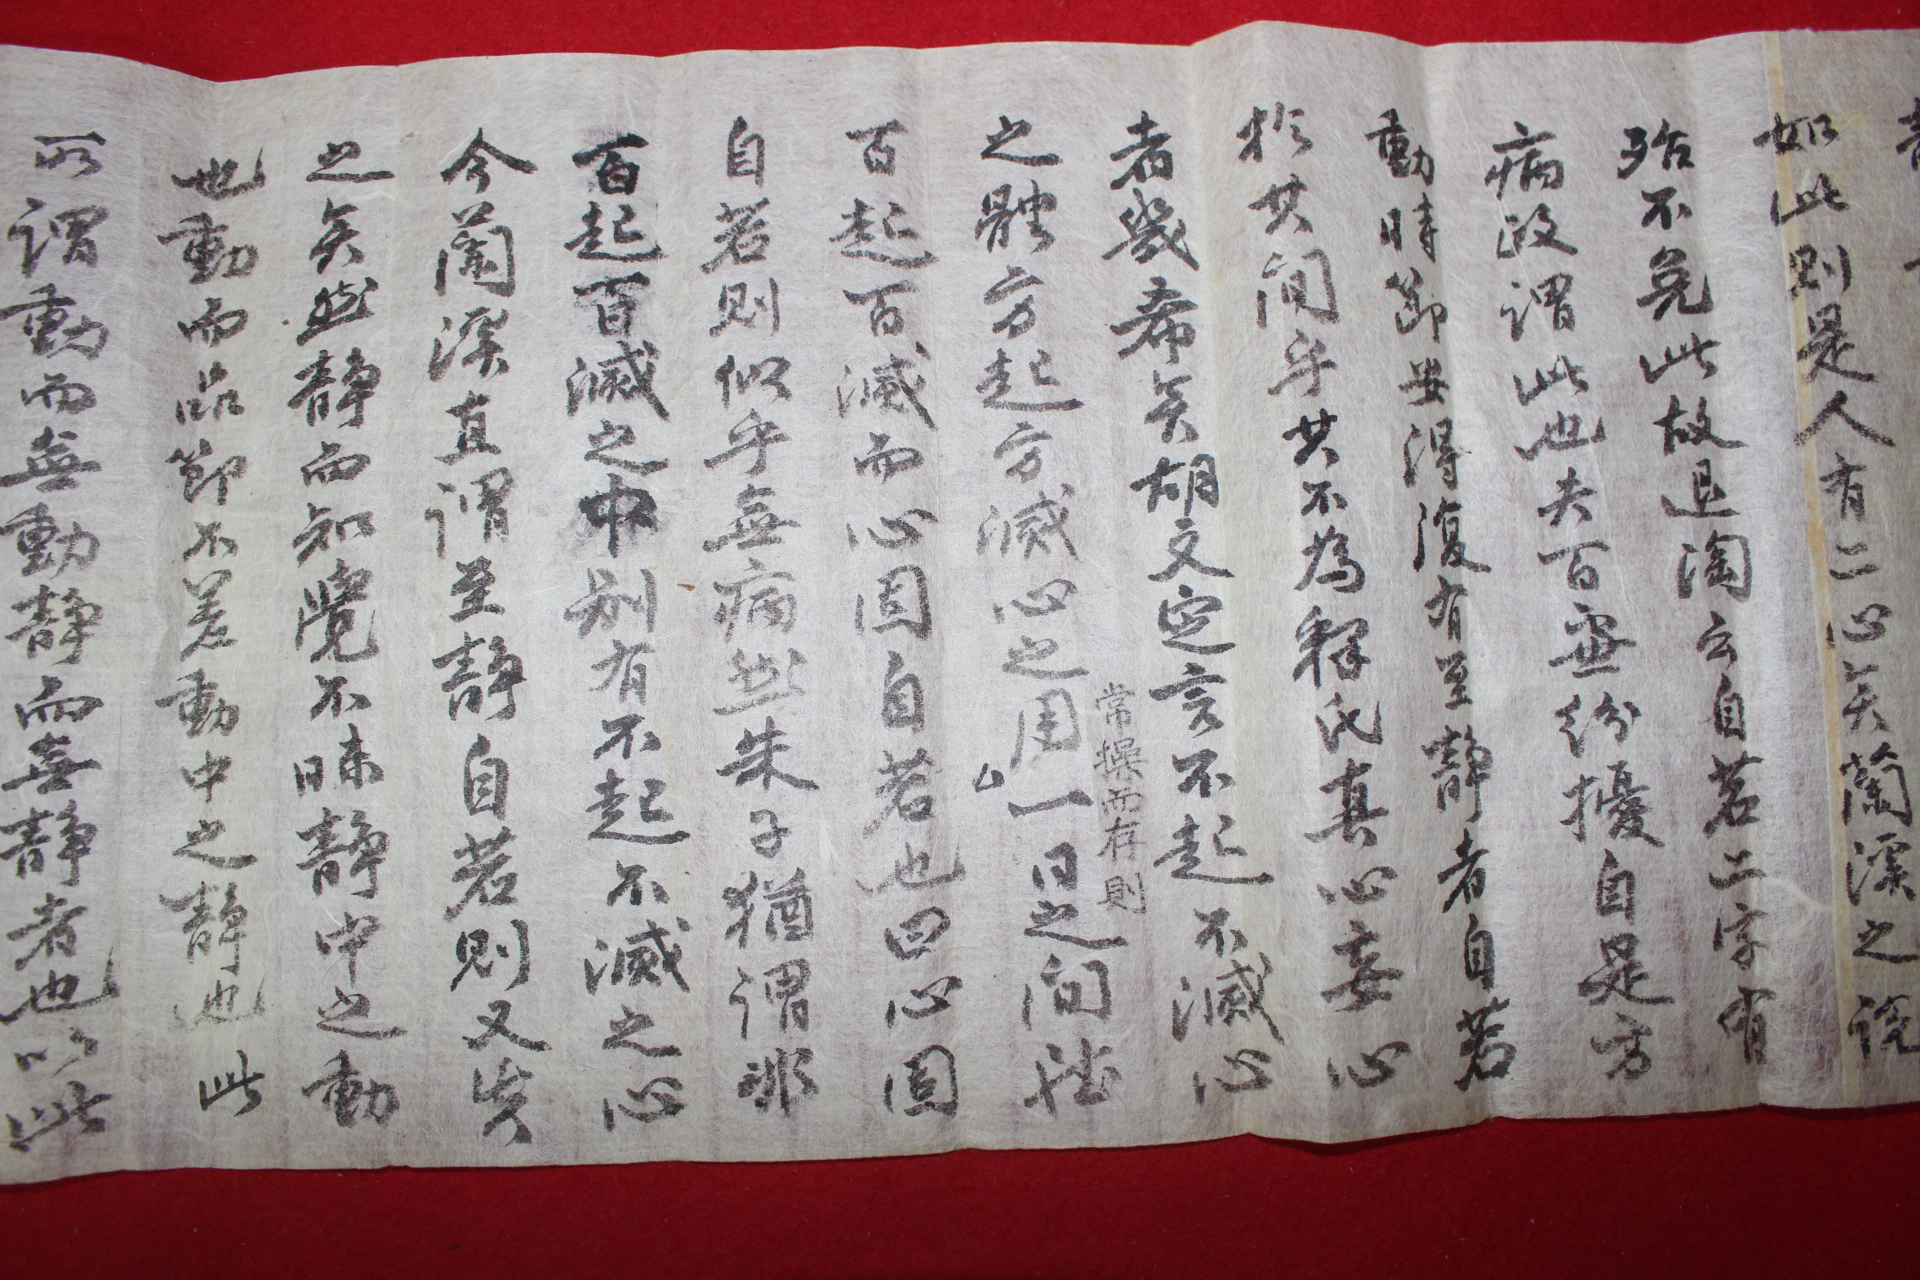 如此則是人有二心矣蘭溪之說
殆不免此故退淘云自若二字有
病政謂此也夫百慮紛擾自是方
動時節安得復有至靜者自若
於其間乎其不為釋氏真心妄心
者幾希矣胡文定言不起不滅心
之體方起方滅心之用常操而存則一日之間雖
百起百滅而心固自若也曰心固
自若則似乎無病然朱子猶謂非
百起百滅之中別有不起不滅之心
今蘭溪直謂至靜自若則又失
之矣然靜而知覺不昧靜中之動
也動而品節不差動中之靜也此
所謂動而無動靜而無靜者也以此